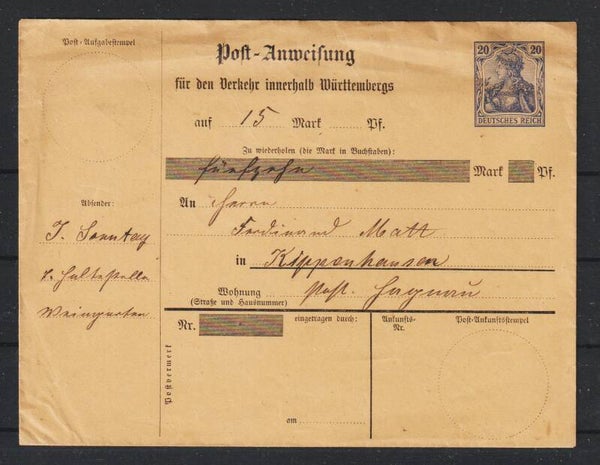 Post-Aufgabestempel
Post-Anweisung
für den Verkehr innerhalb Württembergs
20 20
DEUTSCHES REICH
auf 15 Mark Pf.
Zu wiederholen (die Mark in Buchstaben):
fünfzehn Mark Pf.
An Herrn
Ferdinand Matt
in Kippenhausen
Wohnung
(Straße und Hausnummer)
Post. Hagnau
Absender:
J. Sonntag
z. Haltestelle
Weingarten
Postvermerk
Nr.
eingetragen durch:
am
Ankunfts-
Nr.
Post-Ankunftsstempel